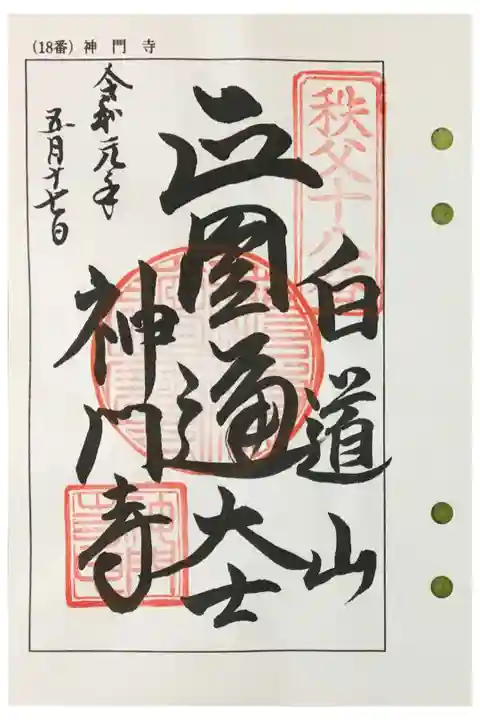 (18番) 神門寺
秩父十八番
白道山
正圓通大士
神門寺
令和元年
五月十七日